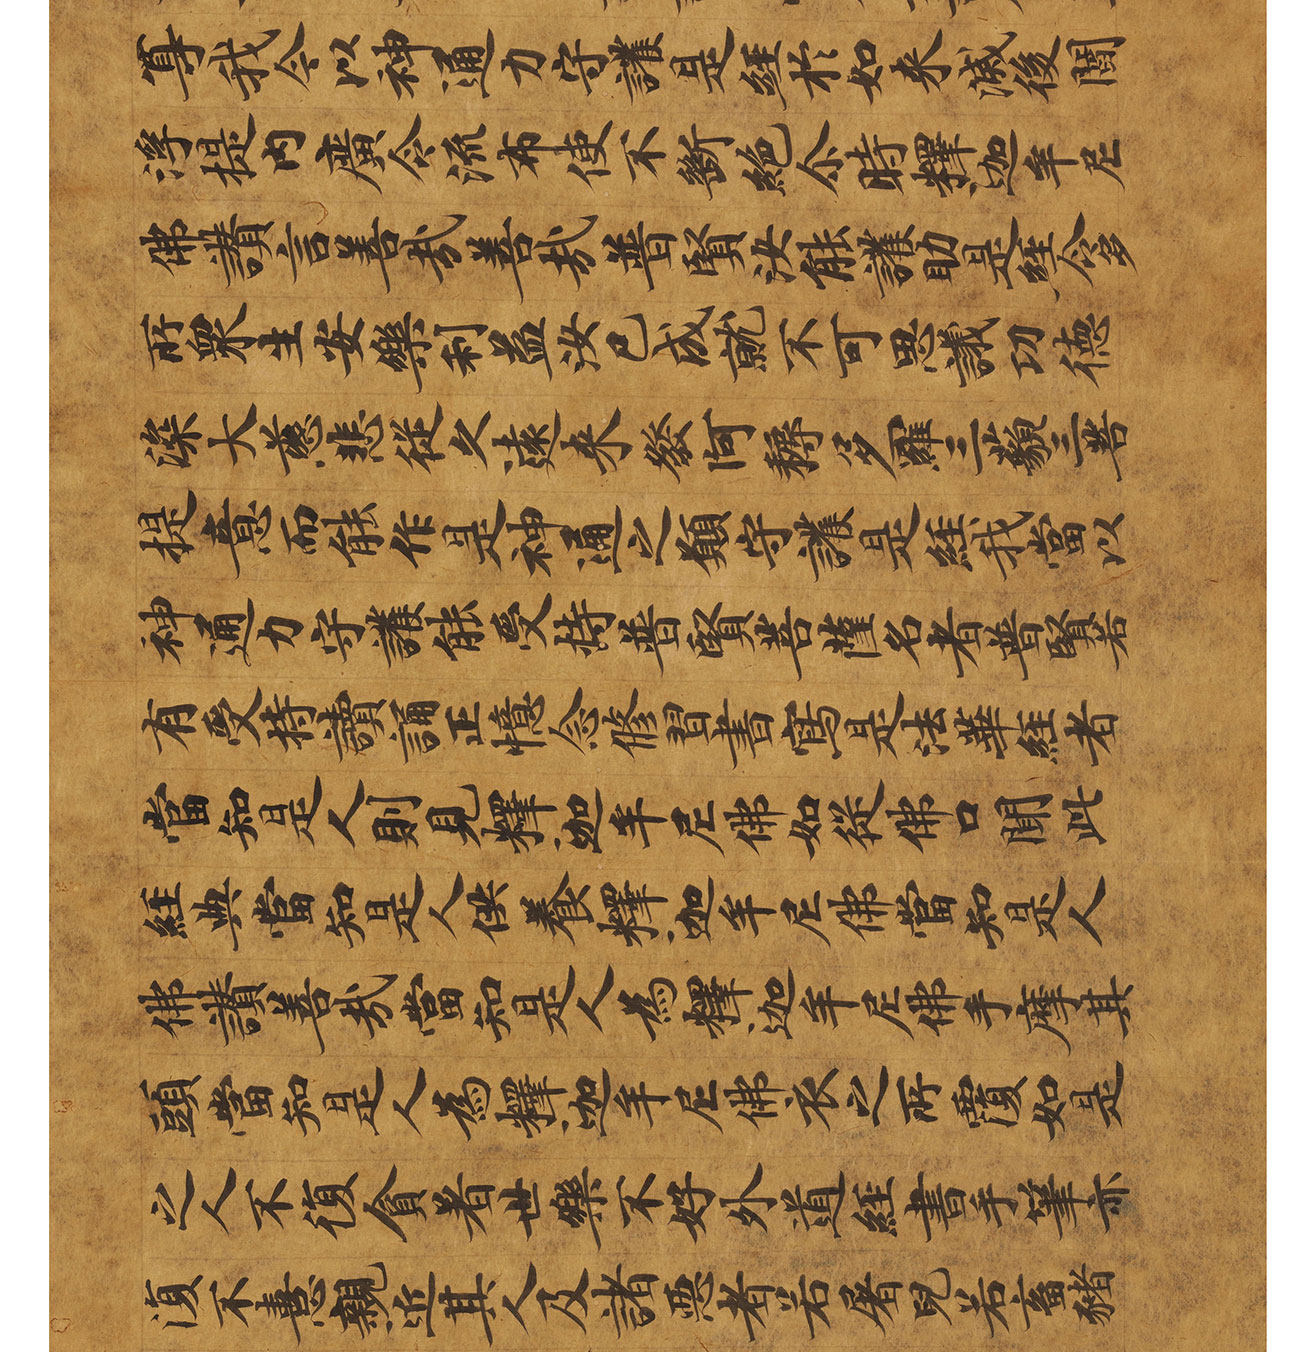 尊我今以神通力守護是經於如来滅後閻
浮提内廣令流布使不斷絕尒時釋迦牟尼
佛讚言善哉善哉普賢汝能護助是經令多
所衆生安樂利益汝已成就不可思議功德
深大慈悲從久遠来發阿耨多羅三藐三菩
提意而能作是神通之願守護是經我當以
神通力守護能受持普賢菩薩名者普賢若
有受持讀誦正憶念修習書寫是法華經者
當知是人則見釋迦牟尼佛如從佛口聞此
經典當知是人供養釋迦牟尼佛當知是人
佛讚善哉當知是人為釋迦牟尼佛手摩其
頭當知是人為釋迦牟尼佛衣之所覆如是
之人不復貪著世樂不好外道經書手筆亦
復不憙親近其人及諸惡者若屠兒若畜猪